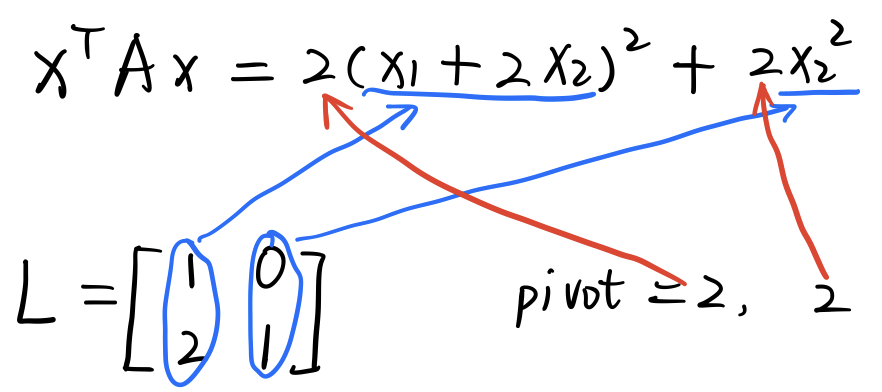 xᵀAx = 2(x₁ + 2x₂)² + 2x₂²
L = [1 0
2 1]
pivot = 2, 2